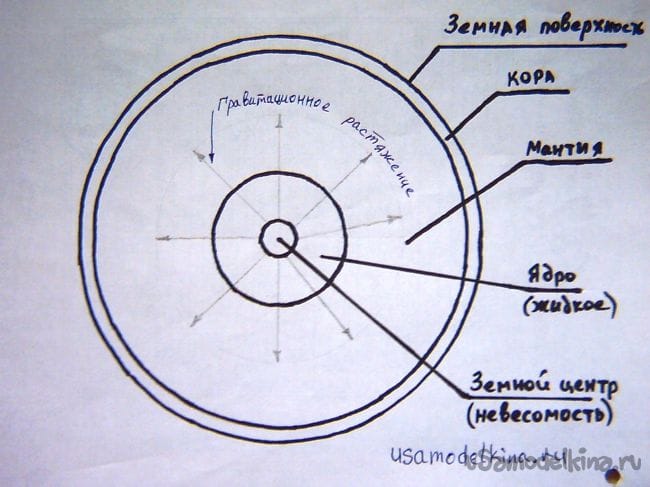 Земная поверхность
КОРА
Гравитационное растяжение
Мантия
Ядро
(жидкое)
Земной центр
(невесомость)
usamodelkina.ru
usamodelkina.ru